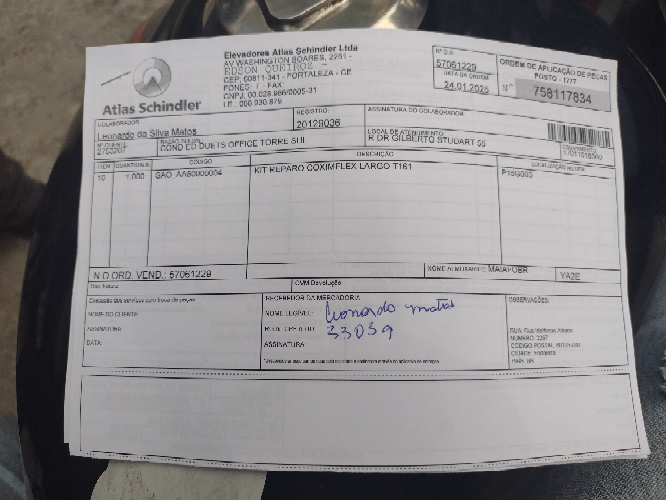 Atlas Schindler
Elevadores Atlas Schindler Ltda
AV WASHINGTON SOARES, 2251 -
EDSON QUEIROZ -
CEP: 60811-341 - FORTALEZA - CE
FONES: / - FAX:
CNPJ: 00.028.986/0005-31
I.E.: 060.930.879
Nº O.S.
57061229
DATA DA ORDEM
24.01.2025
ORDEM DE APLICAÇÃO DE PEÇAS
POSTO - 1777
Nº 758117834
COLABORADOR
Leonardo da Silva Matos
REGISTRO:
20129036
ASSINATURA DO COLABORADOR
Nº CLIENTE
RAZÃO SOCIAL
COND ED DUETS OFFICE TORRE SUL
LOCAL DE ATENDIMENTO
R DR GILBERTO STUDART 55
ITEM QUANTIDADE CÓDIGO DESCRIÇÃO
10 1,000 KIT REPARO COXIMFLEX LARGO T161 P16G003
N.O ORD. VEND.: 57061229
NOME ALMOXARIFE: MAIAFOBR YA2E
CMM Devolução
Execução dos serviços com troca de peças
NOME DO CLIENTE:
ASSINATURA
DATA:
RECEBEDOR DA MERCADORIA
NOME LEGÍVEL: Leonardo matos
33039
ASSINATURA:
OBSERVAÇÕES:
RUA: Rua Ildefonso Albano
CIDADE: Fortaleza
PAÍS: BR